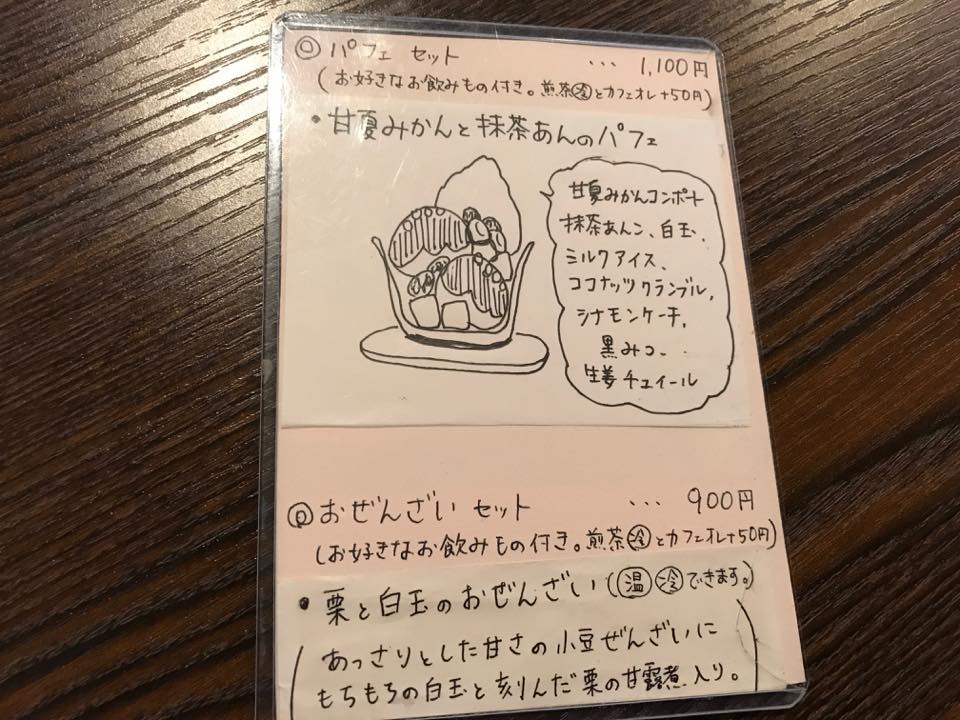 ◎ パフェ セット ... 1,100円
(お好きなお飲みもの付き。煎茶冷とカフェオレ+50円)
・甘夏みかんと抹茶あんのパフェ
甘夏みかんコンポート
抹茶あんこ、白玉、
ミルクアイス、
ココナッツクランブル,
シナモンケーキ,
黒みつ、
生姜チュイール
◎ おぜんざい セット ... 900円
(お好きなお飲みもの付き。煎茶冷とカフェオレ+50円)
・栗と白玉のおぜんざい(温 冷できます。)
(あっさりとした甘さの小豆ぜんざいに
もちもちの白玉と刻んだ栗の甘露煮入り。)